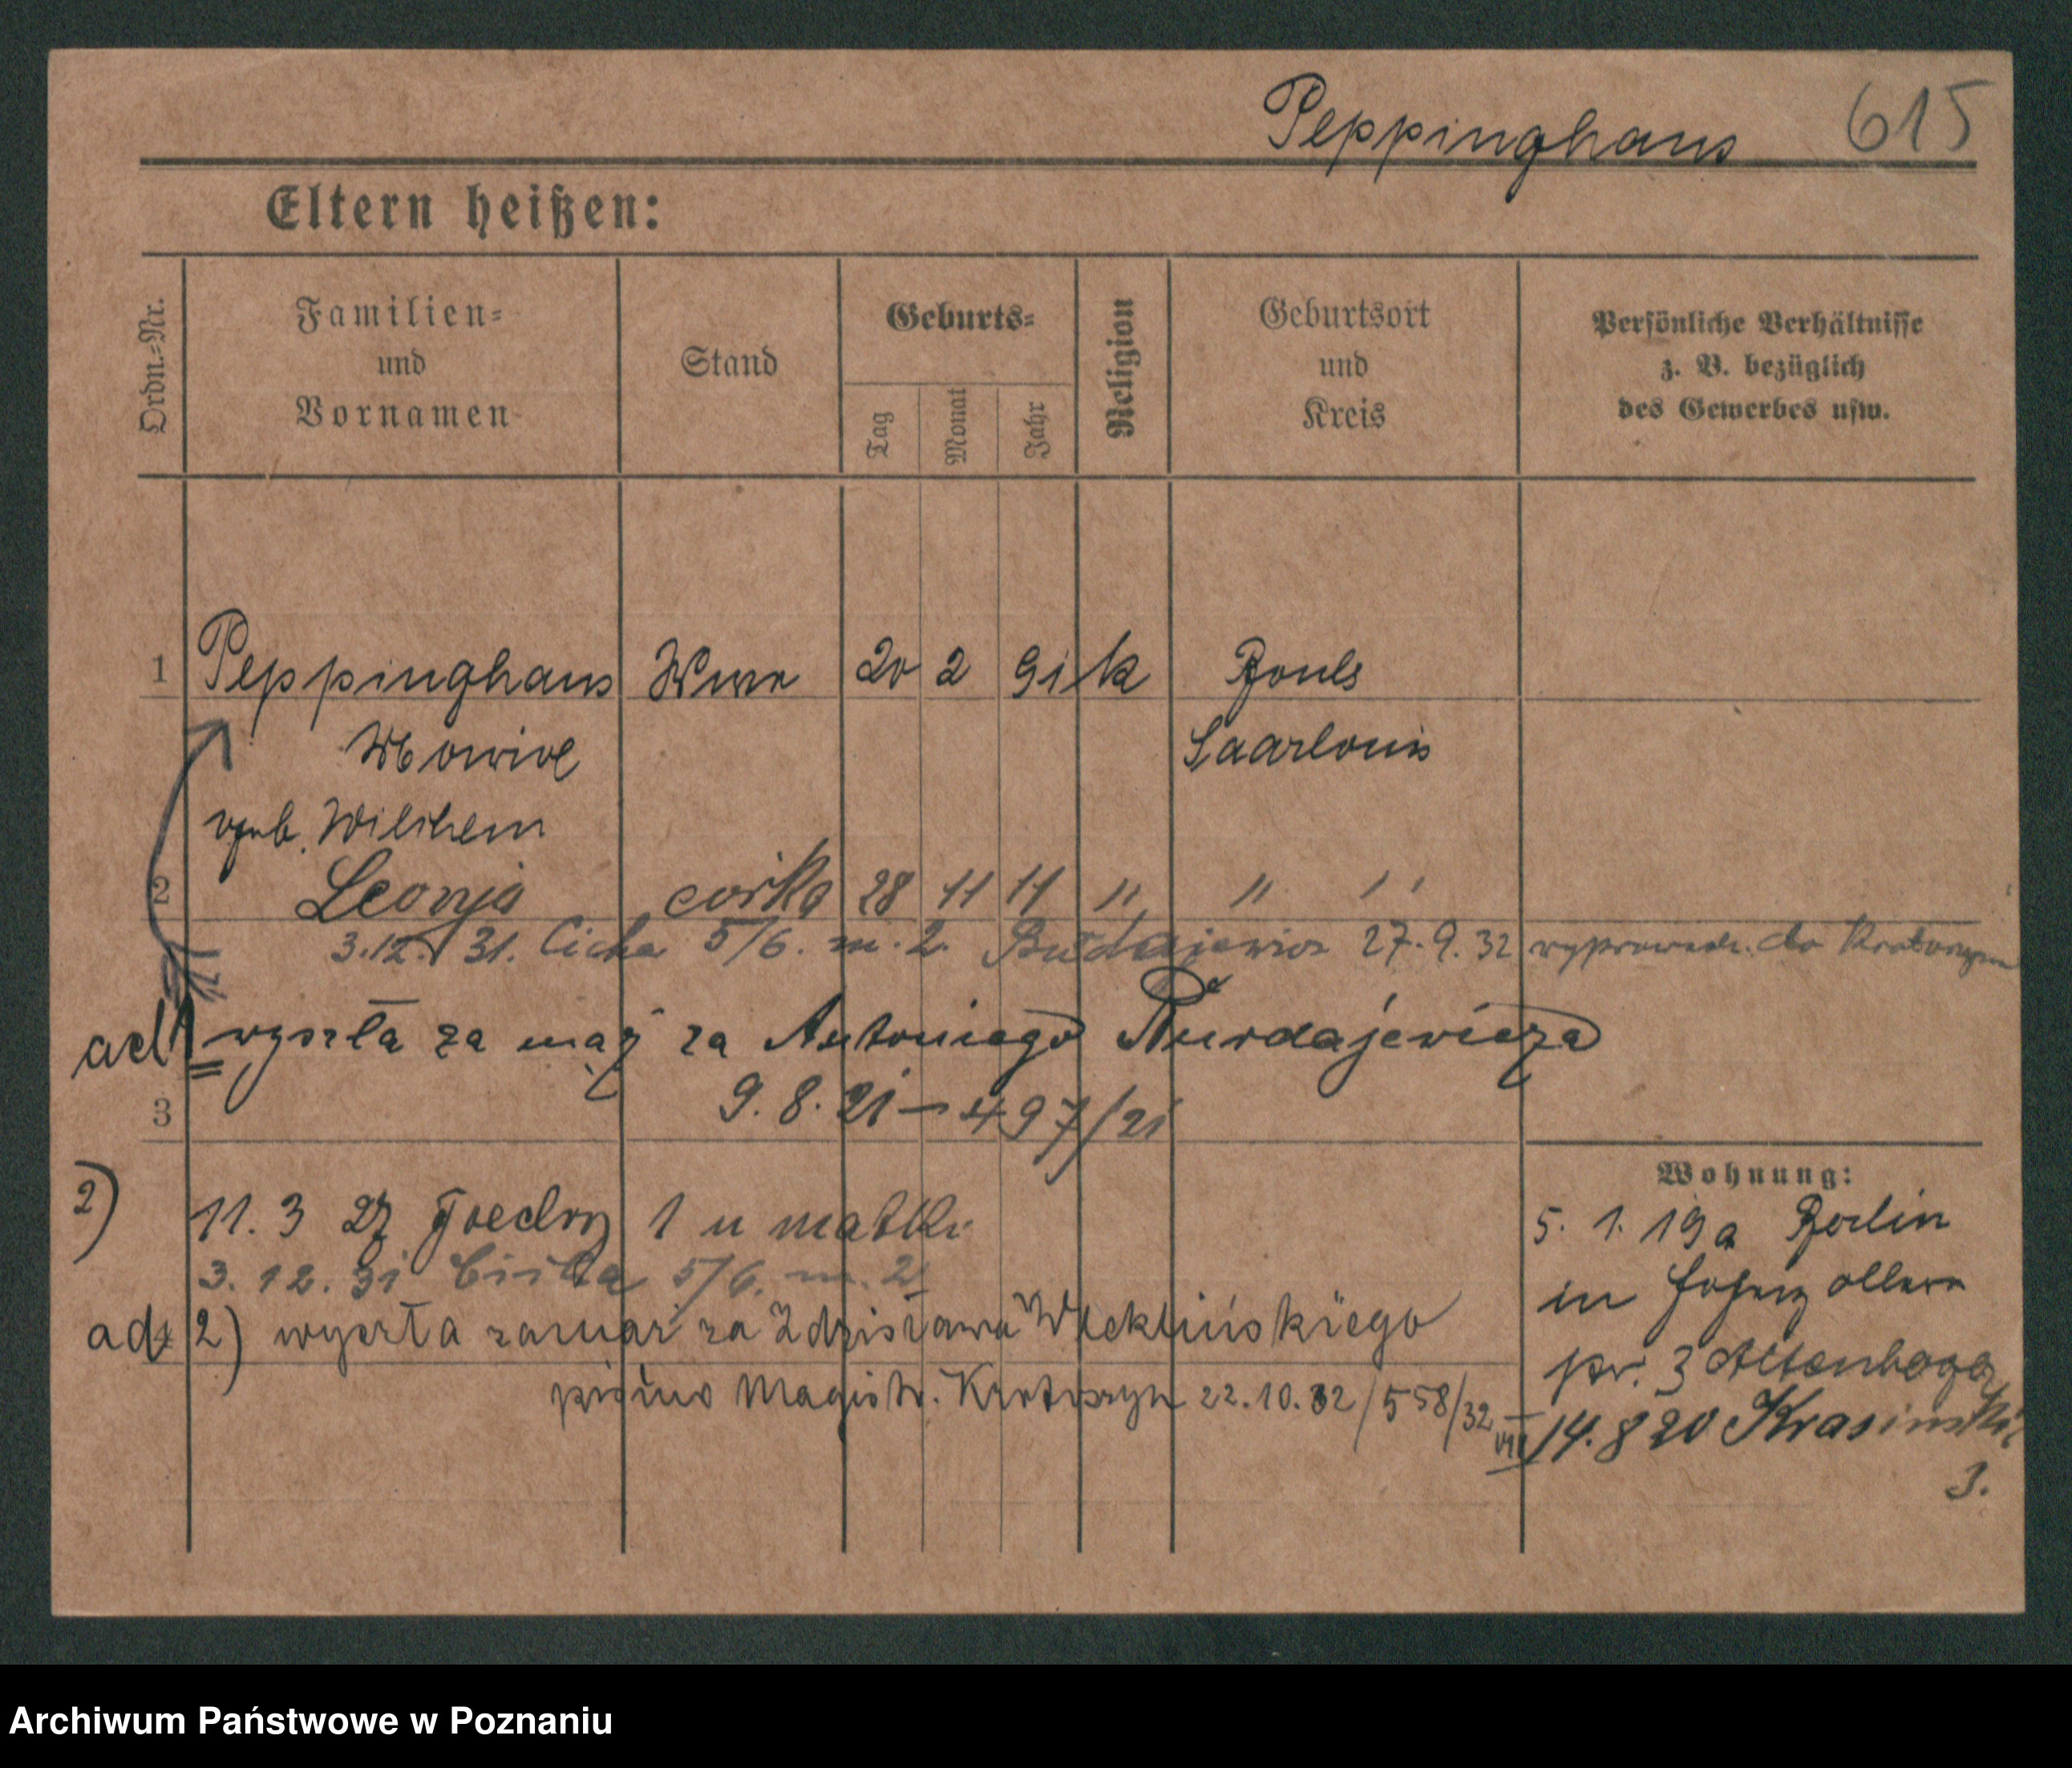 Peppinghaus 615
Eltern heißen:
Ordn.=Nr.
Familien=
und
Vornamen
Stand
Geburts=
Tag
Monat
Jahr
Religion
Geburtsort
und
Kreis
Persönliche Verhältnisse
z. B. bezüglich
des Gewerbes usw.
1 Peppinghaus Wwe 20 2 91 k
Saarlouis
Wilchem
2 Leonja córka 28 11 11 " " "
3.12.31. Cicha 5/6. m. 2. 27.9.32 wyprowadz. do
ad 1 wyszła za mąż za Antoniego
3 9.8.21 – 497/21
2) 11.3 27 1 u matki
3.12.31 Cicha 5/6. m. 2
ad 2) wyszła zamąż za Zdzisława
pismo Magistr. Krotoszyn 22.10.32/558/32 VII
Wohnung:
5. 1. 19 a Berlin
in
pr. 3
14.8 20
3.
Archiwum Państwowe w Poznaniu